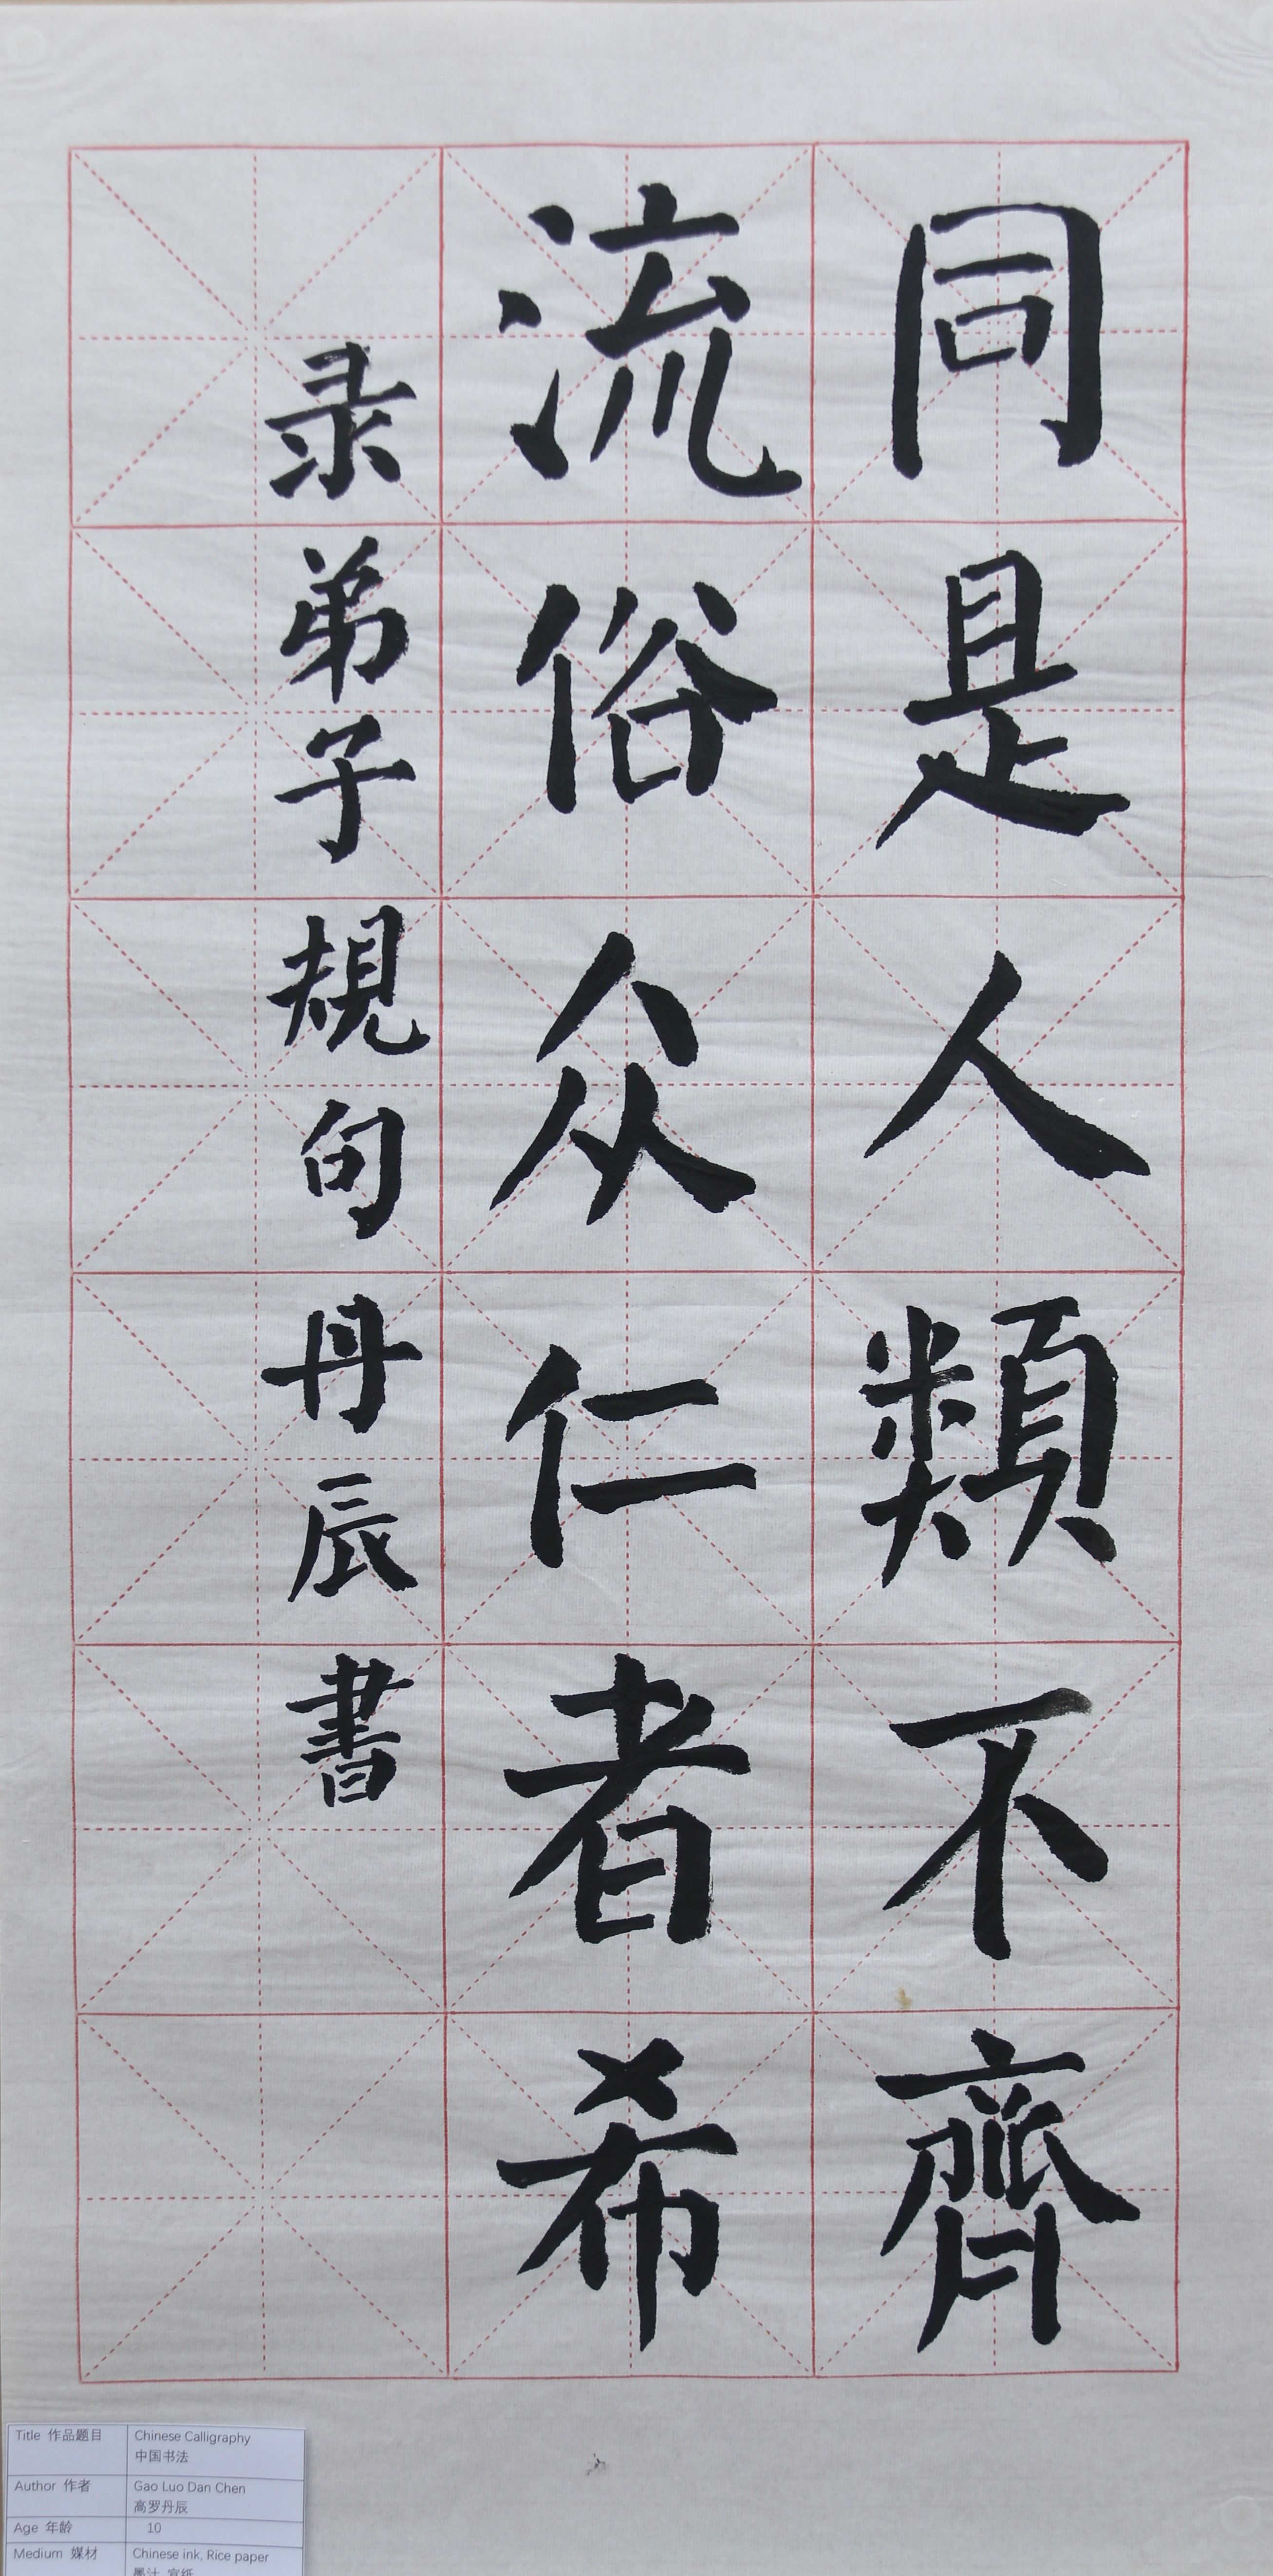 同是人類不齊
流俗众仁者希
录弟子規句丹辰書
Title 作品题目 Chinese Calligraphy
中国书法
Author 作者 Gao Luo Dan Chen
高罗丹辰
Age 年龄 10
Medium 媒材 Chinese ink, Rice paper
墨汁 宣纸